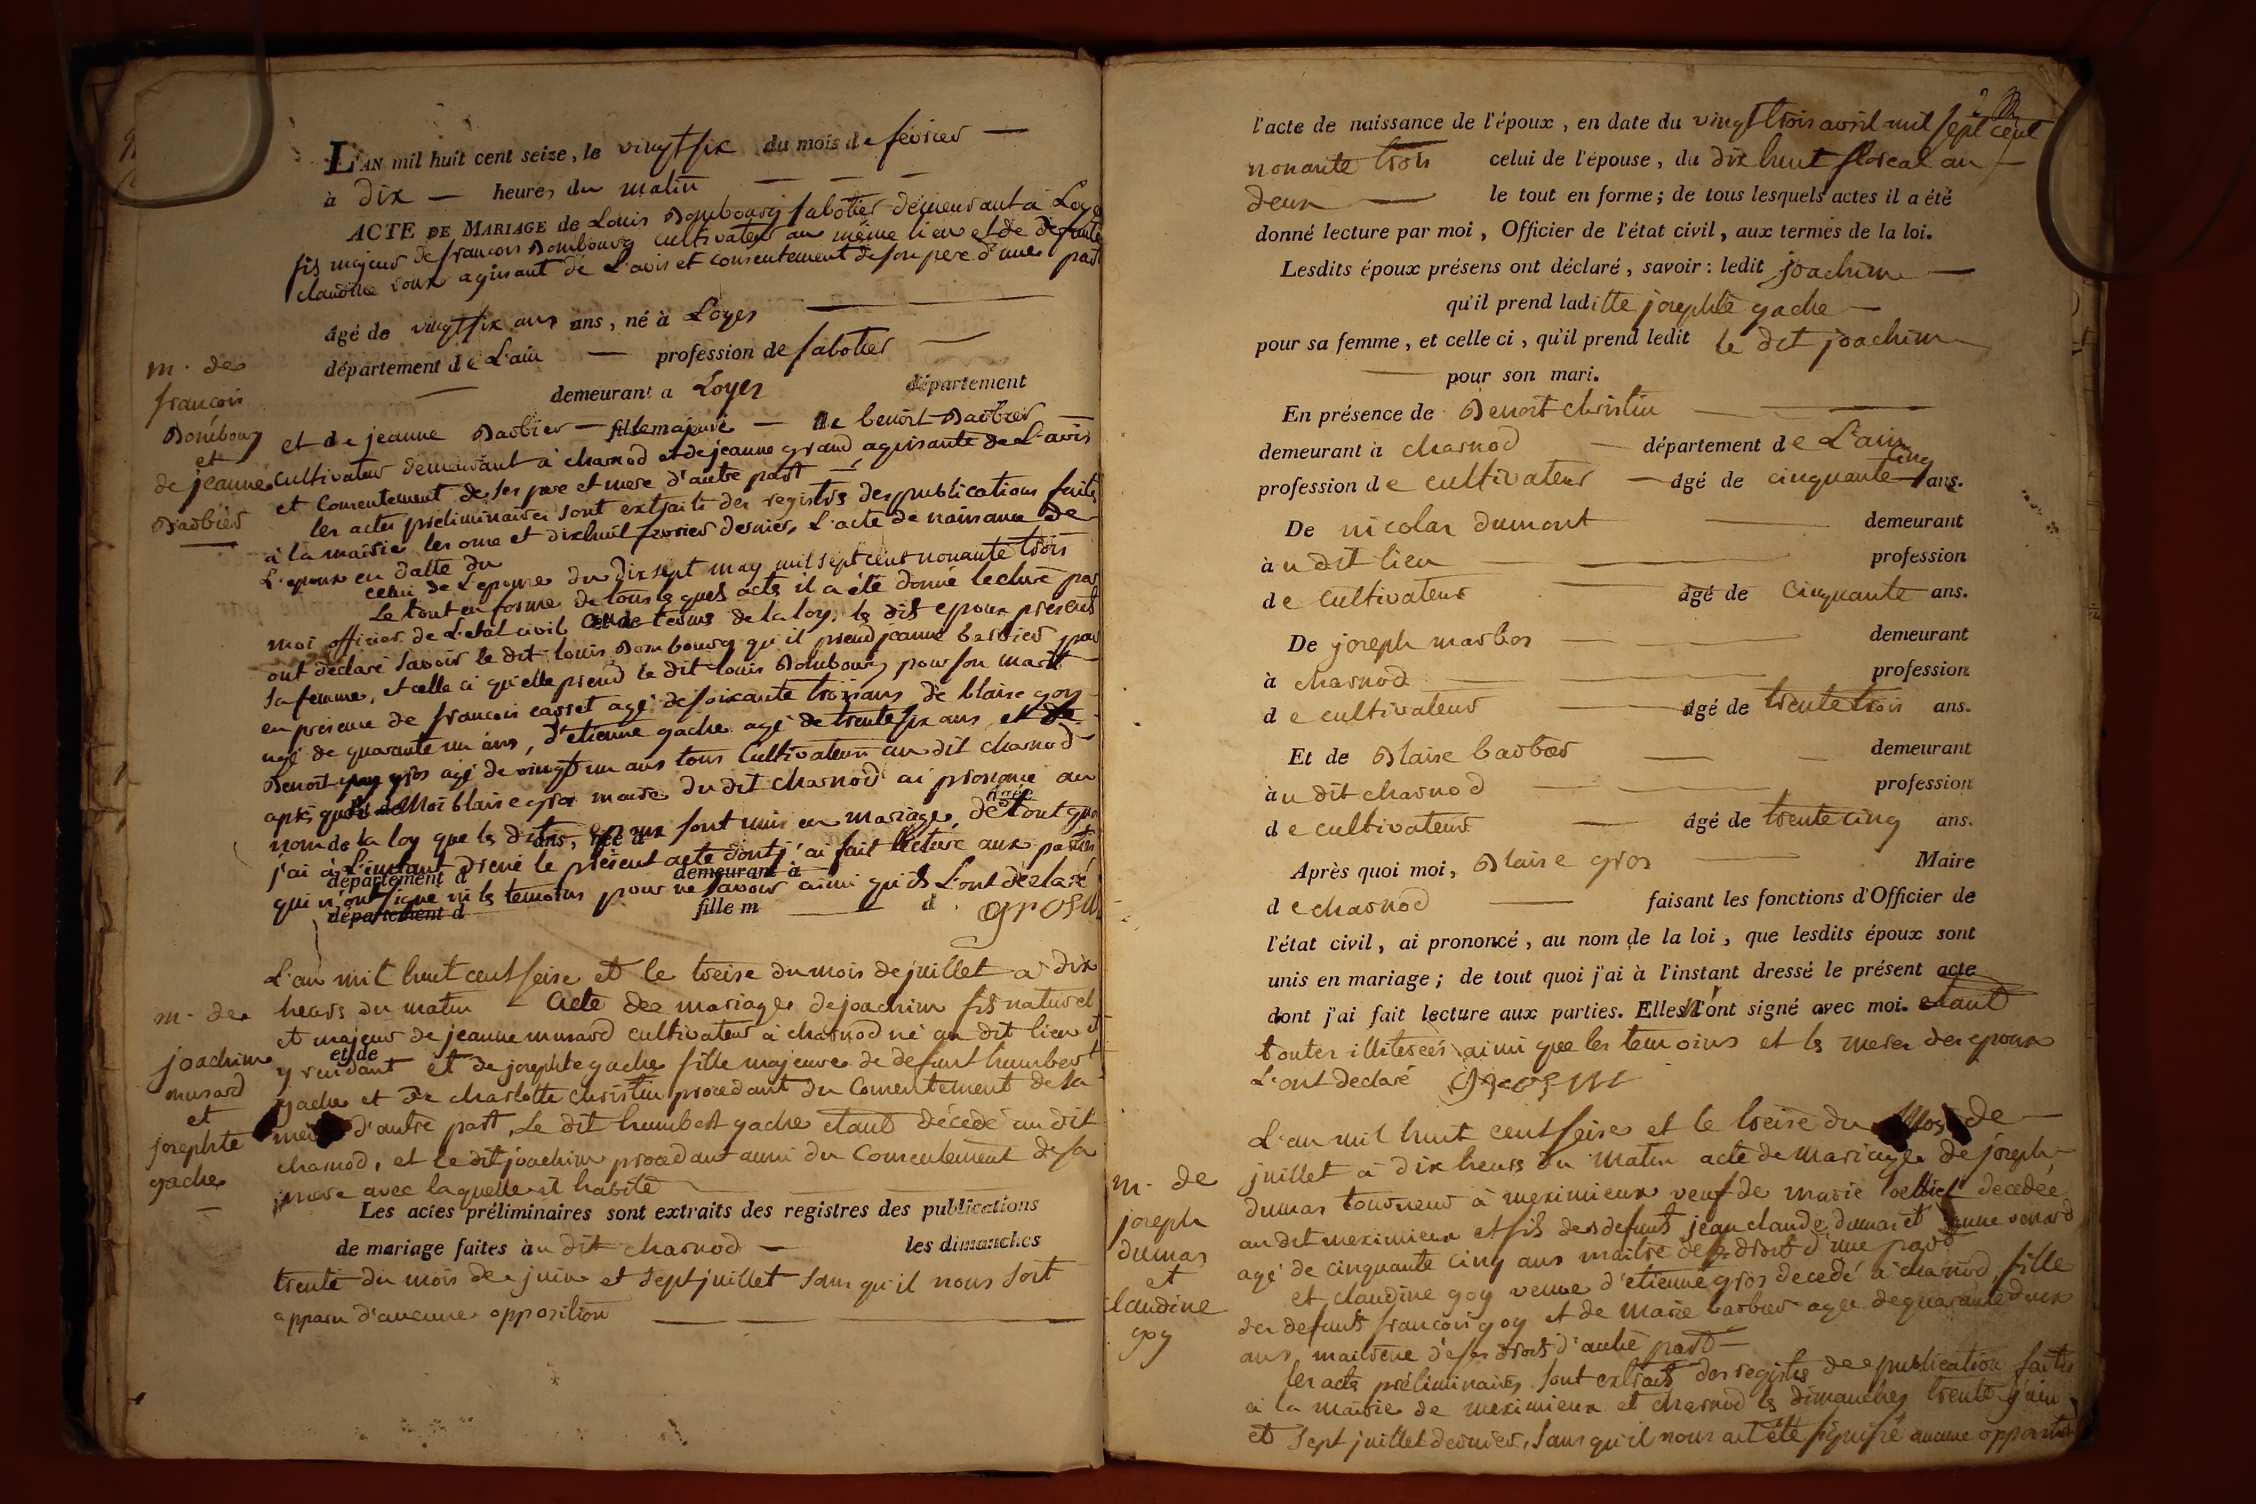 LAN mil huit cent seize, le vingt six du mois de fevrier
à dix heures du matin
ACTE DE MARIAGE de Louis Bombourg sabotier demeurant à Loye
fils majeur de francois Bombourg cultivateur au même lieu et de defunte
claudine roux agissant de L'avis et consentement de son pere d'une part
âgé de vingt six ans ans, né à Loyes
département de L'ain profession de sabotier
demeurant a Loyes département
m. de
françois
Bombourg
et
de jeanne
Barbier
et de jeanne Barbier fille majeure de benoit Barbier
cultivateur demeurant à charnod et de jeanne grand agissante de L'avis
et consentement de ses pere et mere d'autre part
les actes préliminaires sont extraits des registres des publications faites
à la mairie les onze et dixhuit fevrier dernier, L'acte de naissance de
L'epoux en datte du
celui de L'epouse du dixsept may mil sept cent nonante trois
Le tout en forme de tous lesquels acte il a été donné lecture par
moi officier de L'etat civil aux termes de la loy, les dits epoux présents
ont déclaré savoir le dit louis Bombourg qu'il prend jeanne barbier pour
sa femme, et celle ci qu'elle prend le dit louis Bombourg pour son marit
en présence de francois carret agé de soixante trois ans de blaise goy
agé de quarante un ans, d'etienne gache agé de trente six ans et de
Benoit gros agé de vingt un ans tous cultivateurs au dit charnod
après quoi Moi blaise gros maire du dit charnod ai prononcé au
nom de la loy que les dits epoux sont unis en mariage, de tout quoi
âgée
ans, née à
j'ai à L'instant dressé le présent acte dont j'ai fait lecture aux parties
département d demeurant à
qui n'ont signé ni les temoins pour ne savoir ainsi qu'ils L'ont déclaré
département d fille m d
gros m
L'an mil huit cent seise et le treise du mois de juillet à dix
heurs du matin Acte de mariage de joachim fils naturel
et majeur de jeanne musard cultivateur à charnod né au dit lieu et
et de
y residant et de josephte gache fille majeure de defunt humbert
gache et de charlotte christin procedant du consentement de sa
mere d'autre part, Le dit humbert gache etant décedé au dit
charnod, et le dit joachim procedant aussi du consentement de sa
mere avec laquelle il habite
m. de
joachim
musard
et
josephte
gache
Les actes préliminaires sont extraits des registres des publications
de mariage faites à u dit charnod les dimanches
trente du mois de juin et sept juillet sans qu'il nous soit
apparu d'aucune opposition
l'acte de naissance de l'époux, en date du vingt trois avril mil sept cent
nonante trois celui de l'épouse, du dix huit floreal an
deux le tout en forme; de tous lesquels actes il a été
donné lecture par moi, Officier de l'état civil, aux termes de la loi.
Lesdits époux présens ont déclaré, savoir: ledit joachim
qu'il prend laditte josephte gache
pour sa femme, et celle ci, qu'il prend ledit le dit joachim
pour son mari.
En présence de Benoit christin
demeurant à charnod département de L'ain
profession de cultivateur âgé de cinquante cinq ans.
De nicolas dumont demeurant
à u dit lieu profession
de cultivateur âgé de cinquante ans.
De joseph marbos demeurant
à charnod profession
de cultivateur âgé de trente trois ans.
Et de Blaise barbier demeurant
à u dit charnod profession
de cultivateur âgé de trente cinq ans.
Après quoi moi, Blaise gros Maire
de charnod faisant les fonctions d'Officier de
l'état civil, ai prononcé, au nom de la loi, que lesdits époux sont
unis en mariage; de tout quoi j'ai à l'instant dressé le présent acte
dont j'ai fait lecture aux parties. Elles n'ont signé avec moi. etant
toutes illiterées ainsi que les temoins et les meres des epoux
L'ont declaré gros m
L'an mil huit cent seise et le treise du mois de
juillet à dix heurs du matin acte de mariage de joseph
dumas tourneur à meximieux veuf de marie decedée
au dit meximieux et fils des defunts jean claude dumas et anne venard
agé de cinquante cinq ans maitre de ses droits d'une part
et claudine goy veuve d'etienne gros decedé à charnod, fille
des defunts francois goy et de Marie barbier agée de quarante deux
ans, maitresse de ses droits d'autre part
les acte préliminaires sont extraits des registres de publication faites
à la mairie de meximieux et charnod les dimanches trente juin
et sept juillet dernier, sans qu'il nous ait été signifié aucune opposition
m. de
joseph
dumas
et
claudine
goy